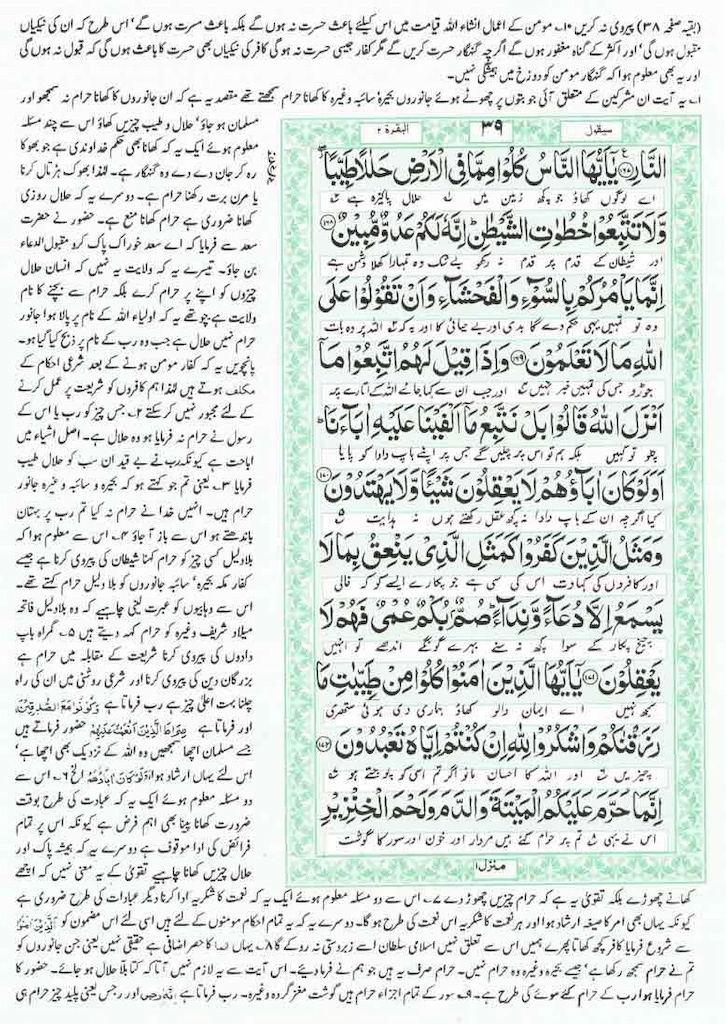 (بقیہ صفحہ ۳۸) پیروی نہ کریں ۱۰۔ مومن کے اعمال انشاء اللہ قیامت میں اس کیلئے باعث حسرت نہ ہوں گے بلکہ باعث مسرت ہوں گے' اس طرح کہ ان کی نیکیاں
مقبول ہوں گی' اور اکثر کے گناہ مغفور ہوں گے اگرچہ گنہگار حسرت کریں گے مگر کفار جیسی حسرت نہ ہو گی کافر کی نیکیاں بھی حسرت کا باعث ہوں گی کہ قبول نہ ہوں گی
اور یہ بھی معلوم ہوا کہ گنہگار مومن کو دوزخ میں ہیشگی نہیں۔
۱۔ یہ آیت ان مشرکین کے متعلق آئی جو بتوں پر چھوٹے ہوئے جانوروں بحیرہ سائبہ وغیرہ کا کھانا حرام سمجھتے تھے مقصد یہ ہے کہ ان جانوروں کا کھانا حرام نہ سمجھو اور
سیقول
۳۹
البقرۃ ۲
النَّارِ ﴿۱۶۷﴾ يٰٓاَيُّهَا النَّاسُ كُلُوْا مِمَّا فِي الْاَرْضِ حَلٰلًا طَيِّبًا
اے لوگوں کھاؤ جو کچھ زمین میں ہے حلال پاکیزہ ہے
وَّلَا تَتَّبِعُوْا خُطُوٰتِ الشَّيْطٰنِ ؕ اِنَّهٗ لَكُمْ عَدُوٌّ مُّبِيْنٌ ﴿۱۶۸﴾
اور شیطان کے قدم پر قدم نہ رکھو بے شک وہ تمہارا کھلا دشمن ہے
اِنَّمَا يَاْمُرُكُمْ بِالسُّوْٓءِ وَالْفَحْشَآءِ وَاَنْ تَقُوْلُوْا عَلَى
وہ تو تمہیں یہی حکم دے گا بدی اور بے حیائی کا اور یہ کہ اللہ پر وہ بات
اللّٰهِ مَا لَا تَعْلَمُوْنَ ﴿۱۶۹﴾ وَاِذَا قِيْلَ لَهُمُ اتَّبِعُوْا مَآ
جوڑو جس کی تمہیں خبر نہیں اور جب ان سے کہا جائے اللہ کے اتارے پر
اَنْزَلَ اللّٰهُ قَالُوْا بَلْ نَتَّبِعُ مَآ اَلْفَيْنَا عَلَيْهِ اٰبَآءَنَا ؕ
چلو تو کہیں بلکہ ہم تو اس پر چلیں گے جس پر اپنے باپ دادا کو پایا
اَوَلَوْ كَانَ اٰبَآؤُهُمْ لَا يَعْقِلُوْنَ شَيْـًٔا وَّلَا يَهْتَدُوْنَ ﴿۱۷۰﴾
کیا اگرچہ ان کے باپ دادا نہ کچھ عقل رکھتے ہوں نہ ہدایت
وَمَثَلُ الَّذِيْنَ كَفَرُوْا كَمَثَلِ الَّذِيْ يَنْعِقُ بِمَا لَا
اور کافروں کی کہاوت اس کی سی ہے جو پکارے ایسے کو کہ خالی
يَسْمَعُ اِلَّا دُعَآءً وَّنِدَآءً ؕ صُمٌّۢ بُكْمٌ عُمْيٌ فَهُمْ لَا
چیخ پکار کے سوا کچھ نہ سنے بہرے گونگے اندھے تو انہیں
يَعْقِلُوْنَ ﴿۱۷۱﴾ يٰٓاَيُّهَا الَّذِيْنَ اٰمَنُوْا كُلُوْا مِنْ طَيِّبٰتِ مَا
سمجھ نہیں اے ایمان والو کھاؤ ہماری دی ہوئی ستھری
رَزَقْنٰكُمْ وَاشْكُرُوْا لِلّٰهِ اِنْ كُنْتُمْ اِيَّاهُ تَعْبُدُوْنَ ﴿۱۷۲﴾
چیزیں اور اللہ کا احسان مانو اگر تم اسی کو پوجتے ہو
اِنَّمَا حَرَّمَ عَلَيْكُمُ الْمَيْتَةَ وَالدَّمَ وَلَحْمَ الْخِنْزِيْرِ
اس نے یہی تم پر حرام کئے ہیں مردار اور خون اور سور کا گوشت
منزل ۱
مسلمان ہو جاؤ' حلال و طیب چیزیں کھاؤ اس سے چند مسئلہ
معلوم ہوئے ایک یہ کہ کھانا بھی حکم خداوندی ہے جو بھوکا
رہ کر جان دے دے وہ گنہگار ہے۔ لہٰذا بھوک ہڑتال کرنا
یا مرن برت رکھنا حرام ہے۔ دوسرے یہ کہ حلال روزی
کھانا ضروری ہے حرام کھانا منع ہے۔ حضور نے حضرت
سعد سے فرمایا کہ اے سعد خوراک پاک کرو مقبول الدعاء
بن جاؤ۔ تیسرے یہ کہ ولایت یہ نہیں کہ انسان حلال
چیزوں کو اپنے پر حرام کرے بلکہ حرام سے بچنے کا نام
ولایت ہے چوتھے یہ کہ اولیاء اللہ کے نام پر پالا ہوا جانور
حرام نہیں حلال ہے جب وہ رب کے نام پر ذبح کیا گیا ہو۔
پانچویں یہ کہ کفار مومن ہونے کے بعد شرعی احکام کے
مکلف ہوتے ہیں لہٰذا ہم کافروں کو شریعت پر عمل کرنے
کے لئے مجبور نہیں کر سکتے ۲۔ جس چیز کو رب یا اس کے
رسول نے حرام نہ فرمایا ہو وہ حلال ہے۔ اصل اشیاء میں
اباحت ہے کیونکہ رب نے بے قید ان سب کو حلال طیب
فرمایا ۳۔ یعنی تم جو کہتے ہو کہ بحیرہ و سائبہ وغیرہ جانور
حرام ہیں۔ انہیں خدا نے حرام نہ کیا تم رب پر بہتان
باندھتے ہو اس سے باز آ جاؤ ۴۔ اس سے معلوم ہوا کہ
بلادلیل کسی چیز کو حرام کہنا شیطان کی پیروی کرنا ہے جیسے
کفار مکہ بحیرہ' سائبہ جانوروں کو بلادلیل حرام کہتے تھے۔
اس سے وہابیوں کو عبرت لینی چاہیے کہ وہ بلادلیل فاتحہ
میلاد شریف وغیرہ کو حرام کہہ دیتے ہیں ۵۔ گمراہ باپ
دادوں کی پیروی کرنا شریعت کے مقابلہ میں حرام ہے
بزرگان دین کی پیروی کرنا اور شرعی روشنی میں ان کی راہ
چلنا بہت اعلیٰ چیز ہے رب فرماتا ہے وَكُوْنُوْا مَعَ الصّٰدِقِيْنَ
اور فرماتا ہے صِرَاطَ الَّذِيْنَ اَنْعَمْتَ عَلَيْهِمْ حضور فرماتے ہیں
جسے مسلمان اچھا سمجھیں وہ اللہ کے نزدیک بھی اچھا ہے'
اس لئے یہاں ارشاد ہوا اَوَلَوْ كَانَ اٰبَاؤُهُمْ الخ ۶۔ اس سے
دو مسئلہ معلوم ہوئے ایک یہ کہ عبادت کی طرح بوقت
ضرورت کھانا پینا بھی اہم فرض ہے کیونکہ اس پر تمام
فرائض کی ادا موقوف ہے دوسرے یہ کہ ہمیشہ پاک اور
حلال چیزیں کھانا چاہیے تقویٰ کے یہ معنی نہیں کہ اچھے
کھانے چھوڑے بلکہ تقویٰ یہ ہے کہ حرام چیزیں چھوڑ دے ۷۔ اس سے دو مسئلہ معلوم ہوئے ایک یہ کہ نعمت کا شکریہ ادا کرنا دیگر عبادات کی طرح ضروری ہے
کیونکہ یہاں بھی امر کا صیغہ ارشاد ہوا اور ہر نعمت کا شکریہ اس نعمت کی طرح ہو گا۔ دوسرے یہ کہ یہ تمام احکام مومنوں کے لئے ہیں اسی لئے اس مضمون کو
سے شروع فرمایا کافر کچھ کھاتا پھرے ہمیں اس سے تعلق نہیں اسلامی سلطان اسے زبردستی نہ روکے گا ۸۔ یہاں انما کا حصر اضافی ہے حقیقی نہیں یعنی جن جانوروں کو
تم نے حرام سمجھ رکھا ہے' جیسے بحیرہ وغیرہ وہ حرام نہیں۔ حرام صرف یہ ہیں جو ہم نے فرما دیئے۔ اس آیت سے یہ لازم نہیں آتا کہ کتا بلا حلال ہو جائے۔ حضور کا
حرام فرمایا ہوا رب کے حرام کئے ہوئے کی طرح ہے۔ ۹۔ سور کے تمام اجزاء حرام ہیں گوشت مغز گردہ وغیرہ۔ رب فرماتا ہے اِنَّهٗ رِجْسٌ اور رجس یعنی پلید چیز حرام ہی